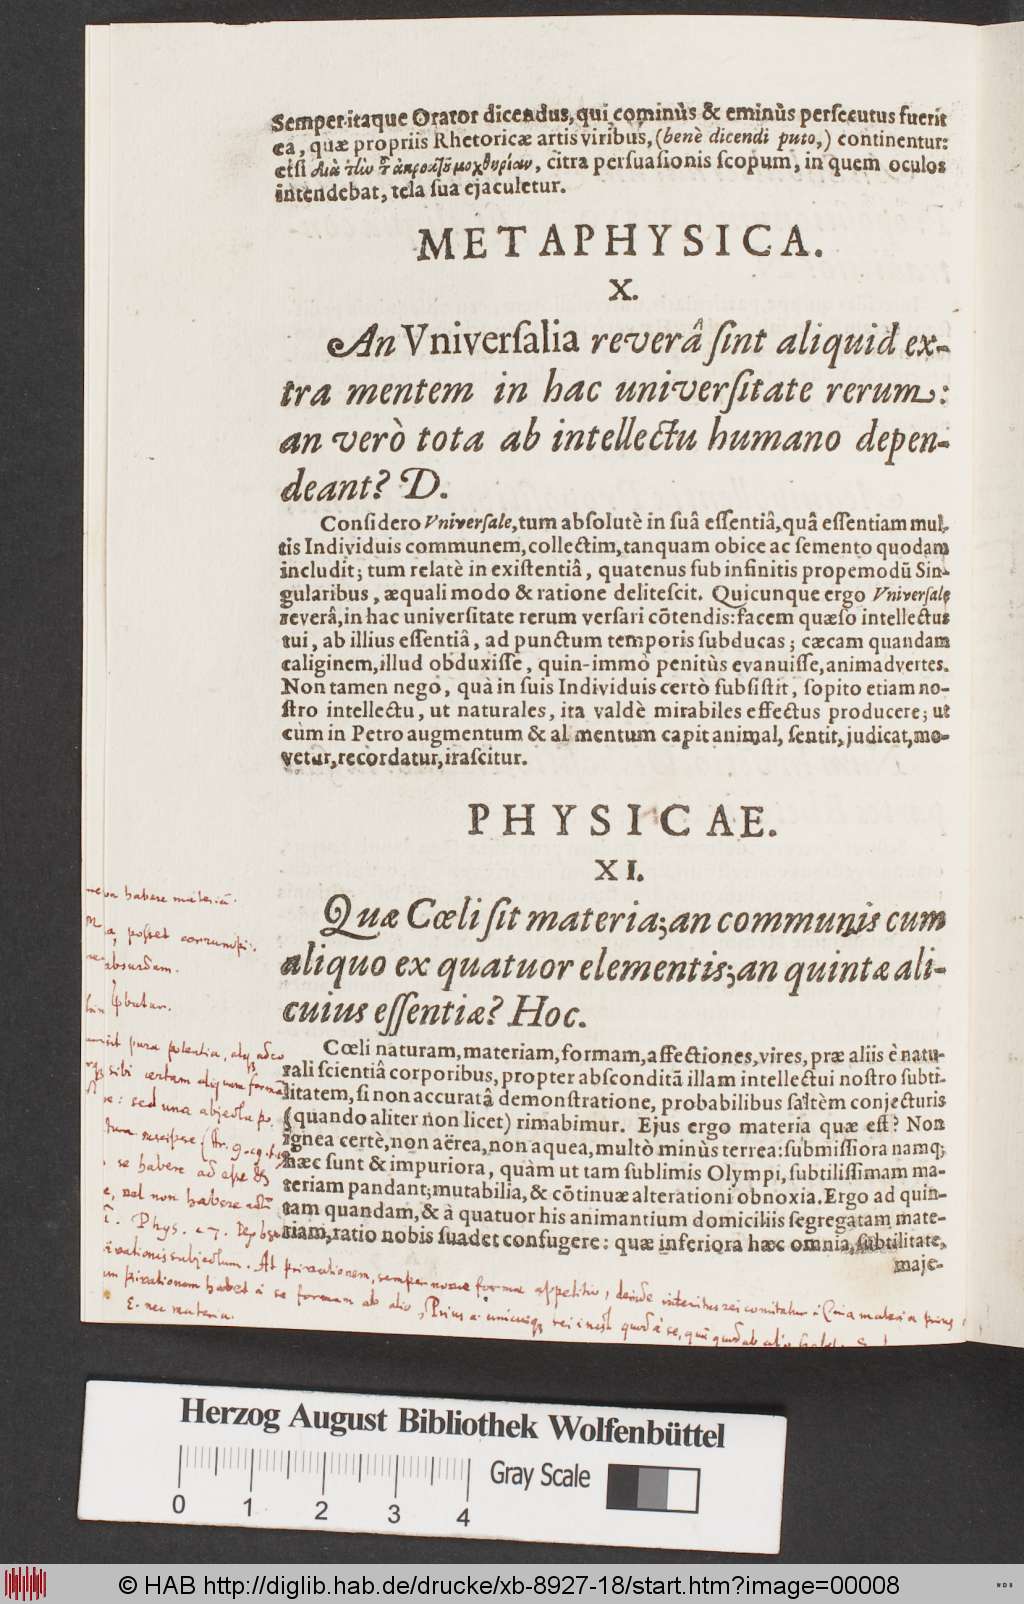 Semper itaque Orator dicendus, qui cominùs & eminùs persecutus fuerit
ea, quæ propriis Rhetoricæ artis viribus, (benè dicendi puto,) continentur:
etsi citra persuasionis scopum, in quem oculos
intendebat, tela sua ejaculetur.
METAPHYSICA.
X.
An Vniversalia reverâ sint aliquid ex-
tra mentem in hac universitate rerum:
an verò tota ab intellectu humano depen-
deant? D.
Considero Vniversale, tum absolutè in suâ essentiâ, quâ essentiam mul-
tis Individuis communem, collectim, tanquam obice ac semento quodam
includit; tum relatè in existentiâ, quatenus sub infinitis propemodũ Sin-
gularibus, æquali modo & ratione delitescit. Quicunque ergo Vniversale
reverâ, in hac universitate rerum versari cõtendis: facem quæso intellectus
tui, ab illius essentiâ, ad punctum temporis subducas; cæcam quandam
caliginem, illud obduxisse, quin-immò penitùs evanuisse, animadvertes.
Non tamen nego, quà in suis Individuis certò subsistit, sopito etiam no-
stro intellectu, ut naturales, ita valdè mirabiles effectus producere; ut
cùm in Petro augmentum & al mentum capit animal, sentit, judicat, mo-
vetur, recordatur, irascitur.
PHYSICAE.
XI.
Quæ Cœli sit materia; an communis cum
aliquo ex quatuor elementis; an quintæ ali-
cuius essentiæ? Hoc.
Cœli naturam, materiam, formam, affectiones, vires, præ aliis è natu-
rali scientiâ corporibus, propter absconditã illam intellectui nostro subti-
litatem, si non accuratâ demonstratione, probabilibus saltèm conjecturis
(quando aliter non licet) rimabimur. Ejus ergo materia quæ est? Non
ignea certè, non aërea, non aquea, multò minùs terrea: submissiora namq;
hæc sunt & impuriora, quàm ut tam sublimis Olympi, subtilissimam ma-
teriam pandant; mutabilia, & cõtinuæ alterationi obnoxia. Ergo ad quin-
tam quandam, & à quatuor his animantium domiciliis segregatam mate-
riam, ratio nobis suadet confugere: quæ inferiora hæc omnia, subtilitate,
maje-
habere materiã.
posset corrumpi.
absurdum.
pura potentia, atq; adeo
sibi certam aliquam formã
sed una abjecta po
suscipere
se habere ad esse &
vel non habere
Phys.
privationis subjectum. At privationem, semper novae formae appetitio, deinde interitus rei comitatur. Quia materia prius
privationem habet à se formam ab alio, Prius unicuiq; rei inest quod à se, quã quod ab alio
E. nec materia.
Herzog August Bibliothek Wolfenbüttel
Gray Scale
0 1 2 3 4
© HAB http://diglib.hab.de/drucke/xb-8927-18/start.htm?image=00008